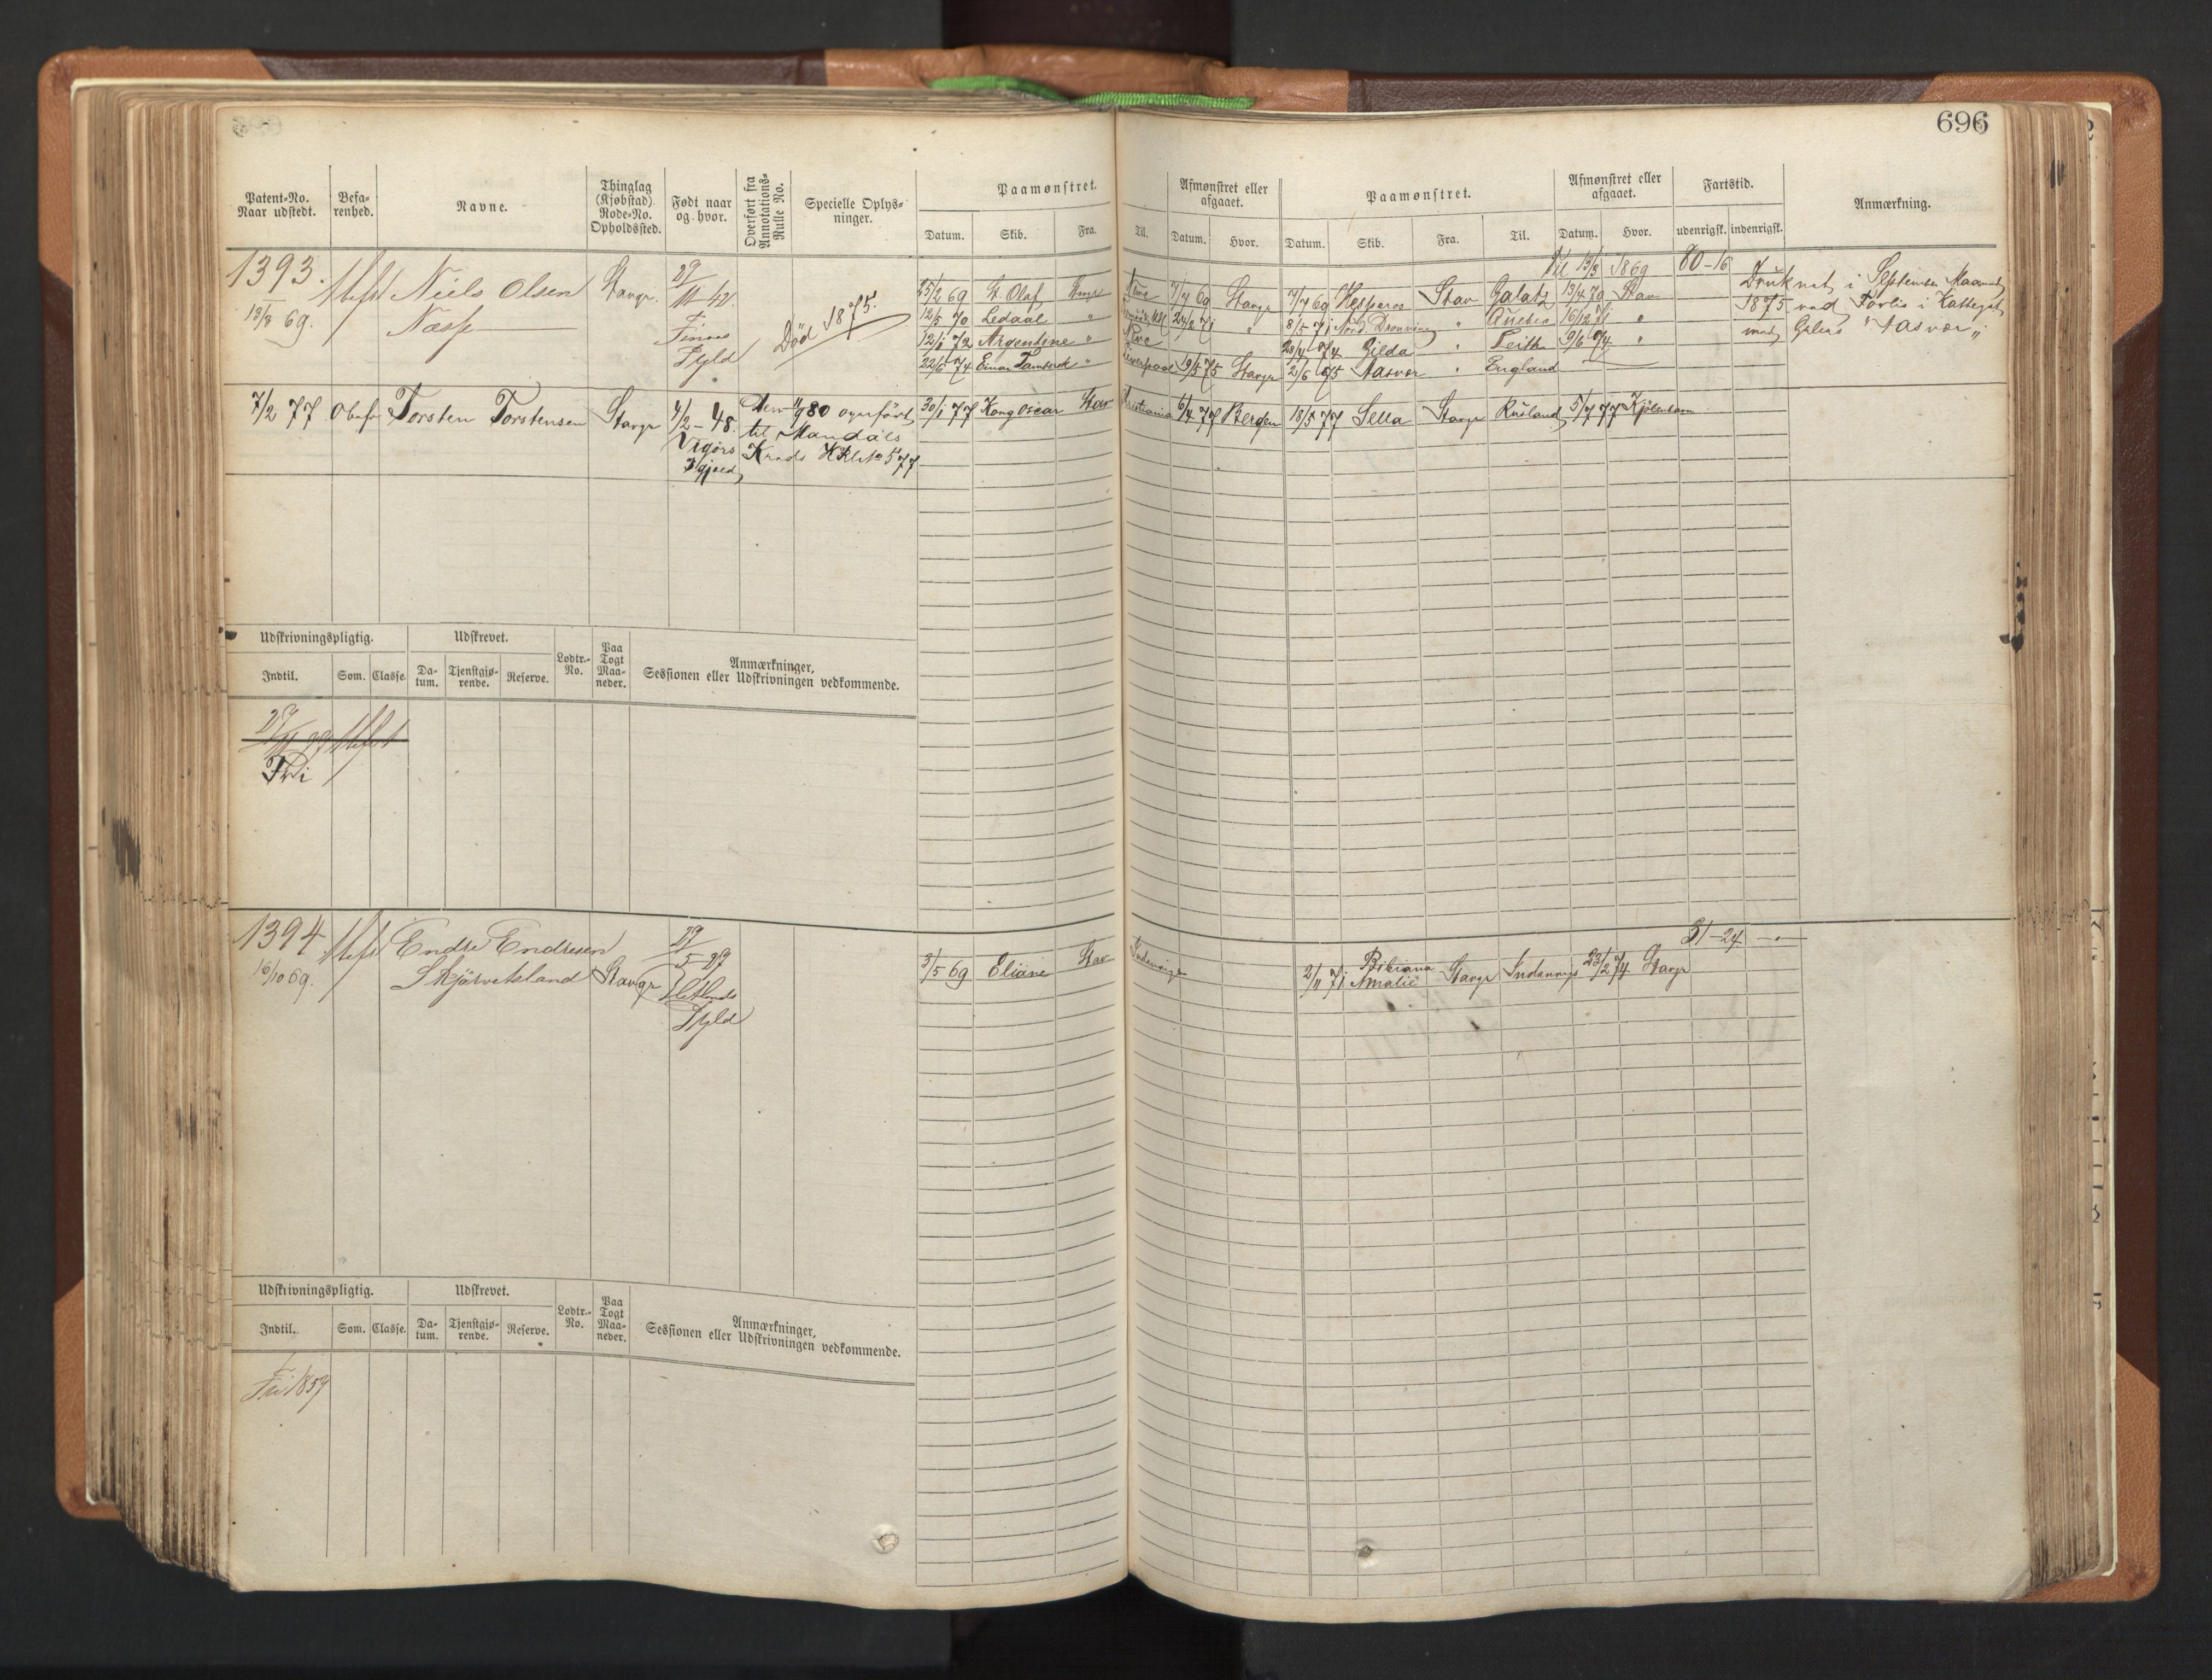 696
Patent-No. Naar udstedt.
Befa-renhed.
Navne.
Thinglag (Kjøbstad) Rode-No. Opholdssted.
Født naar og hvor.
Overført fra Annotations-Rulle No.
Specielle Oplys-ninger.
Paamønstret.
Datum. Skib. Fra. Til.
Afmønstret eller afgaaet.
Datum. Hvor.
Paamønstret.
Datum. Skib. Fra. Til.
Afmønstret eller afgaaet.
Datum. Hvor.
Fartstid.
udenrigsk. indenrigsk.
Anmærkning.
1393.
13/3 69.
Niels Olsen
Næsse
Stavgr.
Finnø
Død 1875.
Til 13/3 1869 80-16
25/2 69 St. Olaf Stavgr 7/7 69 Stavgr 7/7 69 Hesperos Stav Galatz 13/4 70 Stav
12/5 70 Ledaal " 24/2 71 " 8/5 71 Nord. Dronning " 16/12 71 "
12/1 72 Argentine " 28/4 74 Gilda " Leith 9/6 74 "
22/6 74 Einar Tamberk " Liverpool 19/5 75 Stavgr 2/6 75 Aasvær " England
Druknet i September Maaned
1875 ved Forlis i Kattegat
med Galeas "Aasvær"
7/2 77 Obefar Torsten Torstensen Stavgr 4/2-48. Vigørs
Den 11/9 80 overført
til Mandals
Krads
577
30/1 77 Kong Oscar Stav Kristiania 6/4 77 Bergen 18/5 77 Sella Stavgr Rusland 5/7 77 Kjøbenhavn
Udskrivningspligtig. Udskrevet.
Indtil. Som. Classe. Da-tum. Tjenstgjø-rende. Reserve. Lodtr.-No. Paa Togt Maa-neder.
Anmærkninger, Sessionen eller Udskrivningen vedkommende.
Fri
1394
16/10 69.
Endre Endresen
Skjørvetsland
Stavgr
31-24 -"-
3/5 69 Eliane Stav Indenrigs
2/11 71 Bibiana Amalie Stavgr Indenrigs 23/2 74 Stavgr
Udskrivningspligtig. Udskrevet.
Indtil. Som. Classe. Da-tum. Tjenstgjø-rende. Reserve. Lodtr.-No. Paa Togt Maa-neder.
Anmærkninger, Sessionen eller Udskrivningen vedkommende.
Fri 1859